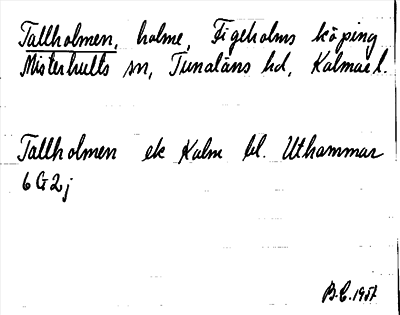 Tallholmen, holme, Figeholms köping
Misterhults sn, Tunaläns hd, Kalmar l.
Tallholmen ek Kalm bl. Uthammar
6 G 2 j
B.C. 1957